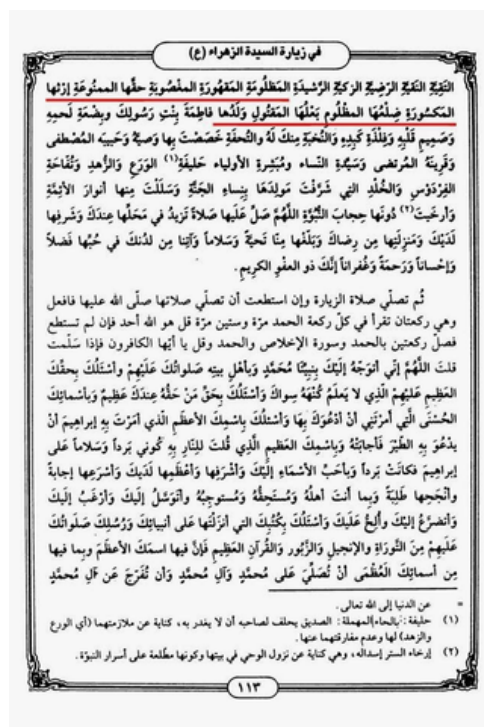 في زيارة السيدة الزهراء (ع)
التَّقِيَّةِ النَّقِيَّةِ الرَّضِيَّةِ الزكيَّةِ الرَّشيدَةِ المَظلُومَةِ المَقهُورَةِ المغْصُوبَةِ حقُّها الممنُوعَةِ إرْثُها
المَكسُورَةِ ضِلْعُهَا المظلُومِ بَعْلُهَا المَقتُولِ وَلَدُها فاطِمَةَ بِنْتِ رَسُولِكَ وبِضْعَةِ لَحمِهِ
وَصَمِيمِ قَلْبِهِ وَفِلْذَةِ كَبِدِهِ وَالنُّخبَةِ مِنكَ لَهُ والتُّحفَةِ خَصَصْتَ بِها وَصِيَّهُ وَحَبِيبَه المُصْطَفى
وَقَرِينَةِ المُرتَضى وَسَيِّدَةِ النِّسَاء ومُبَشِّرةِ الأولياء حَلِيفَةِ(١) الوَرَعِ وَالزُّهدِ وَتُفَّاحَةِ
الفِرْدَوْسِ وَالخُلْدِ التي شَرَّفْتَ مَولِدَهَا بِنِساءِ الجَنَّةِ وَسَلَلْتَ مِنها أنوارَ الأئِمَّةِ
وَأرخَيتَ(٢) دُونَها حِجابَ النُّبُوَّةِ اللَّهُمَّ صَلِّ عَلَيها صَلاةً تَزيدُ في مَحَلِّها عِندَكَ وَشَرَفِها
لَدَيْكَ وَمَنزِلَتِها مِن رِضاكَ وَبَلِّغْها مِنّا تَحيَّةً وَسَلاماً وَآتِنا مِن لدُنكَ في حُبِّها فَضلاً
وَإحْساناً وَرَحمَةً وَغُفراناً إنَّكَ ذو العفْوِ الكريمِ.
ثُم تصلّي صلاة الزيارة وإن استطعت أن تصلّي صلاتها صلّى الله عليها فافعل
وهي ركعتان تقرأ في كلّ ركعة الحمد مرّة وستين مرّة قل هو الله أحد فإن لم تستطع
فصلّ ركعتين بالحمد وسورة الإخلاص والحمد وقل يا أيّها الكافرون فإذا سلّمت
قلتَ اللَّهُمَّ إنّي أتَوَجَّهُ إلَيْكَ بِنَبِيِّنَا مُحَمَّدٍ وَبأهْلِ بيتِهِ صَلواتُكَ عَلَيْهِمْ وأسْئَلُكَ بِحقِّكَ
العَظِيمِ عَلَيْهِمْ الَّذي لا يَعلَمُ كُنْهَهُ سِواكَ وَأسْئَلُكَ بِحَقِّ مَن حَقُّه عِندَكَ عَظِيمٌ وَبأسْمائِكَ
الحُسْنَى الَّتي أمَرْتَني أنْ أدْعُوَكَ بِهَا وَأسْئَلُكَ بِاسْمِكَ الأعظَمِ الَّذي أمَرْتَ بِهِ إبراهيمَ أنْ
يدْعُوَ بِهِ الطَّيْرَ فَأجابَتْهُ وَبِاسْمِكَ العَظيمِ الَّذِي قُلتَ لِلنارِ بِهِ كُوني بَرداً وَسَلاماً عَلى
إبراهيمَ فكانَتْ بَرداً وَبأحَبِّ الأسْمَاءِ إلَيْكَ وَأشْرَفِها وَأعْظَمِها لَدَيكَ وَأسْرَعِها إجابةً
وأنْجَحِها طَلِبَةً وَبِما أنتَ أهلُهُ وَمُسْتَحِقُّهُ وَمُستوجِبُهُ وأتَوَسَّلُ إلَيْكَ وَأرْغَبُ إلَيكَ
وَأتضرَّعُ إلَيْكَ وألِحُّ عَلَيكَ وَأسْئَلُكَ بِكُتُبِكَ التي أنزَلْتَها عَلى أنبيائِكَ وَرُسُلِكَ صَلَواتُكَ
عَلَيهِمْ مِنَ التَّوْرَاةِ وَالإنجيلِ وَالزَّبُورِ وَالقُرآنِ العَظِيمِ فَإنَّ فيها اسمَكَ الأعظَمَ وبِما فيها
مِن أسمائِكَ العُظْمَى أنْ تُصَلِّيَ عَلى مُحمَّدٍ وَآلِ مُحمَّدٍ وَأن تُفَرِّجَ عَن آلِ مُحمَّدٍ
= عن الدنيا إلى الله تعالى.
(١) حليفة: بالحاء المهملة: الصديق يحلف لصاحبه أن لا يغدر به، كناية عن ملازمتهما (أي الورع
والزهد) لها وعدم مفارقتهما عنها.
(٢) إرخاء الستر إسداله، وهي كناية عن نزول الوحي في بيتها وكونها مطلعة على أسرار النبوّة.
١١٣